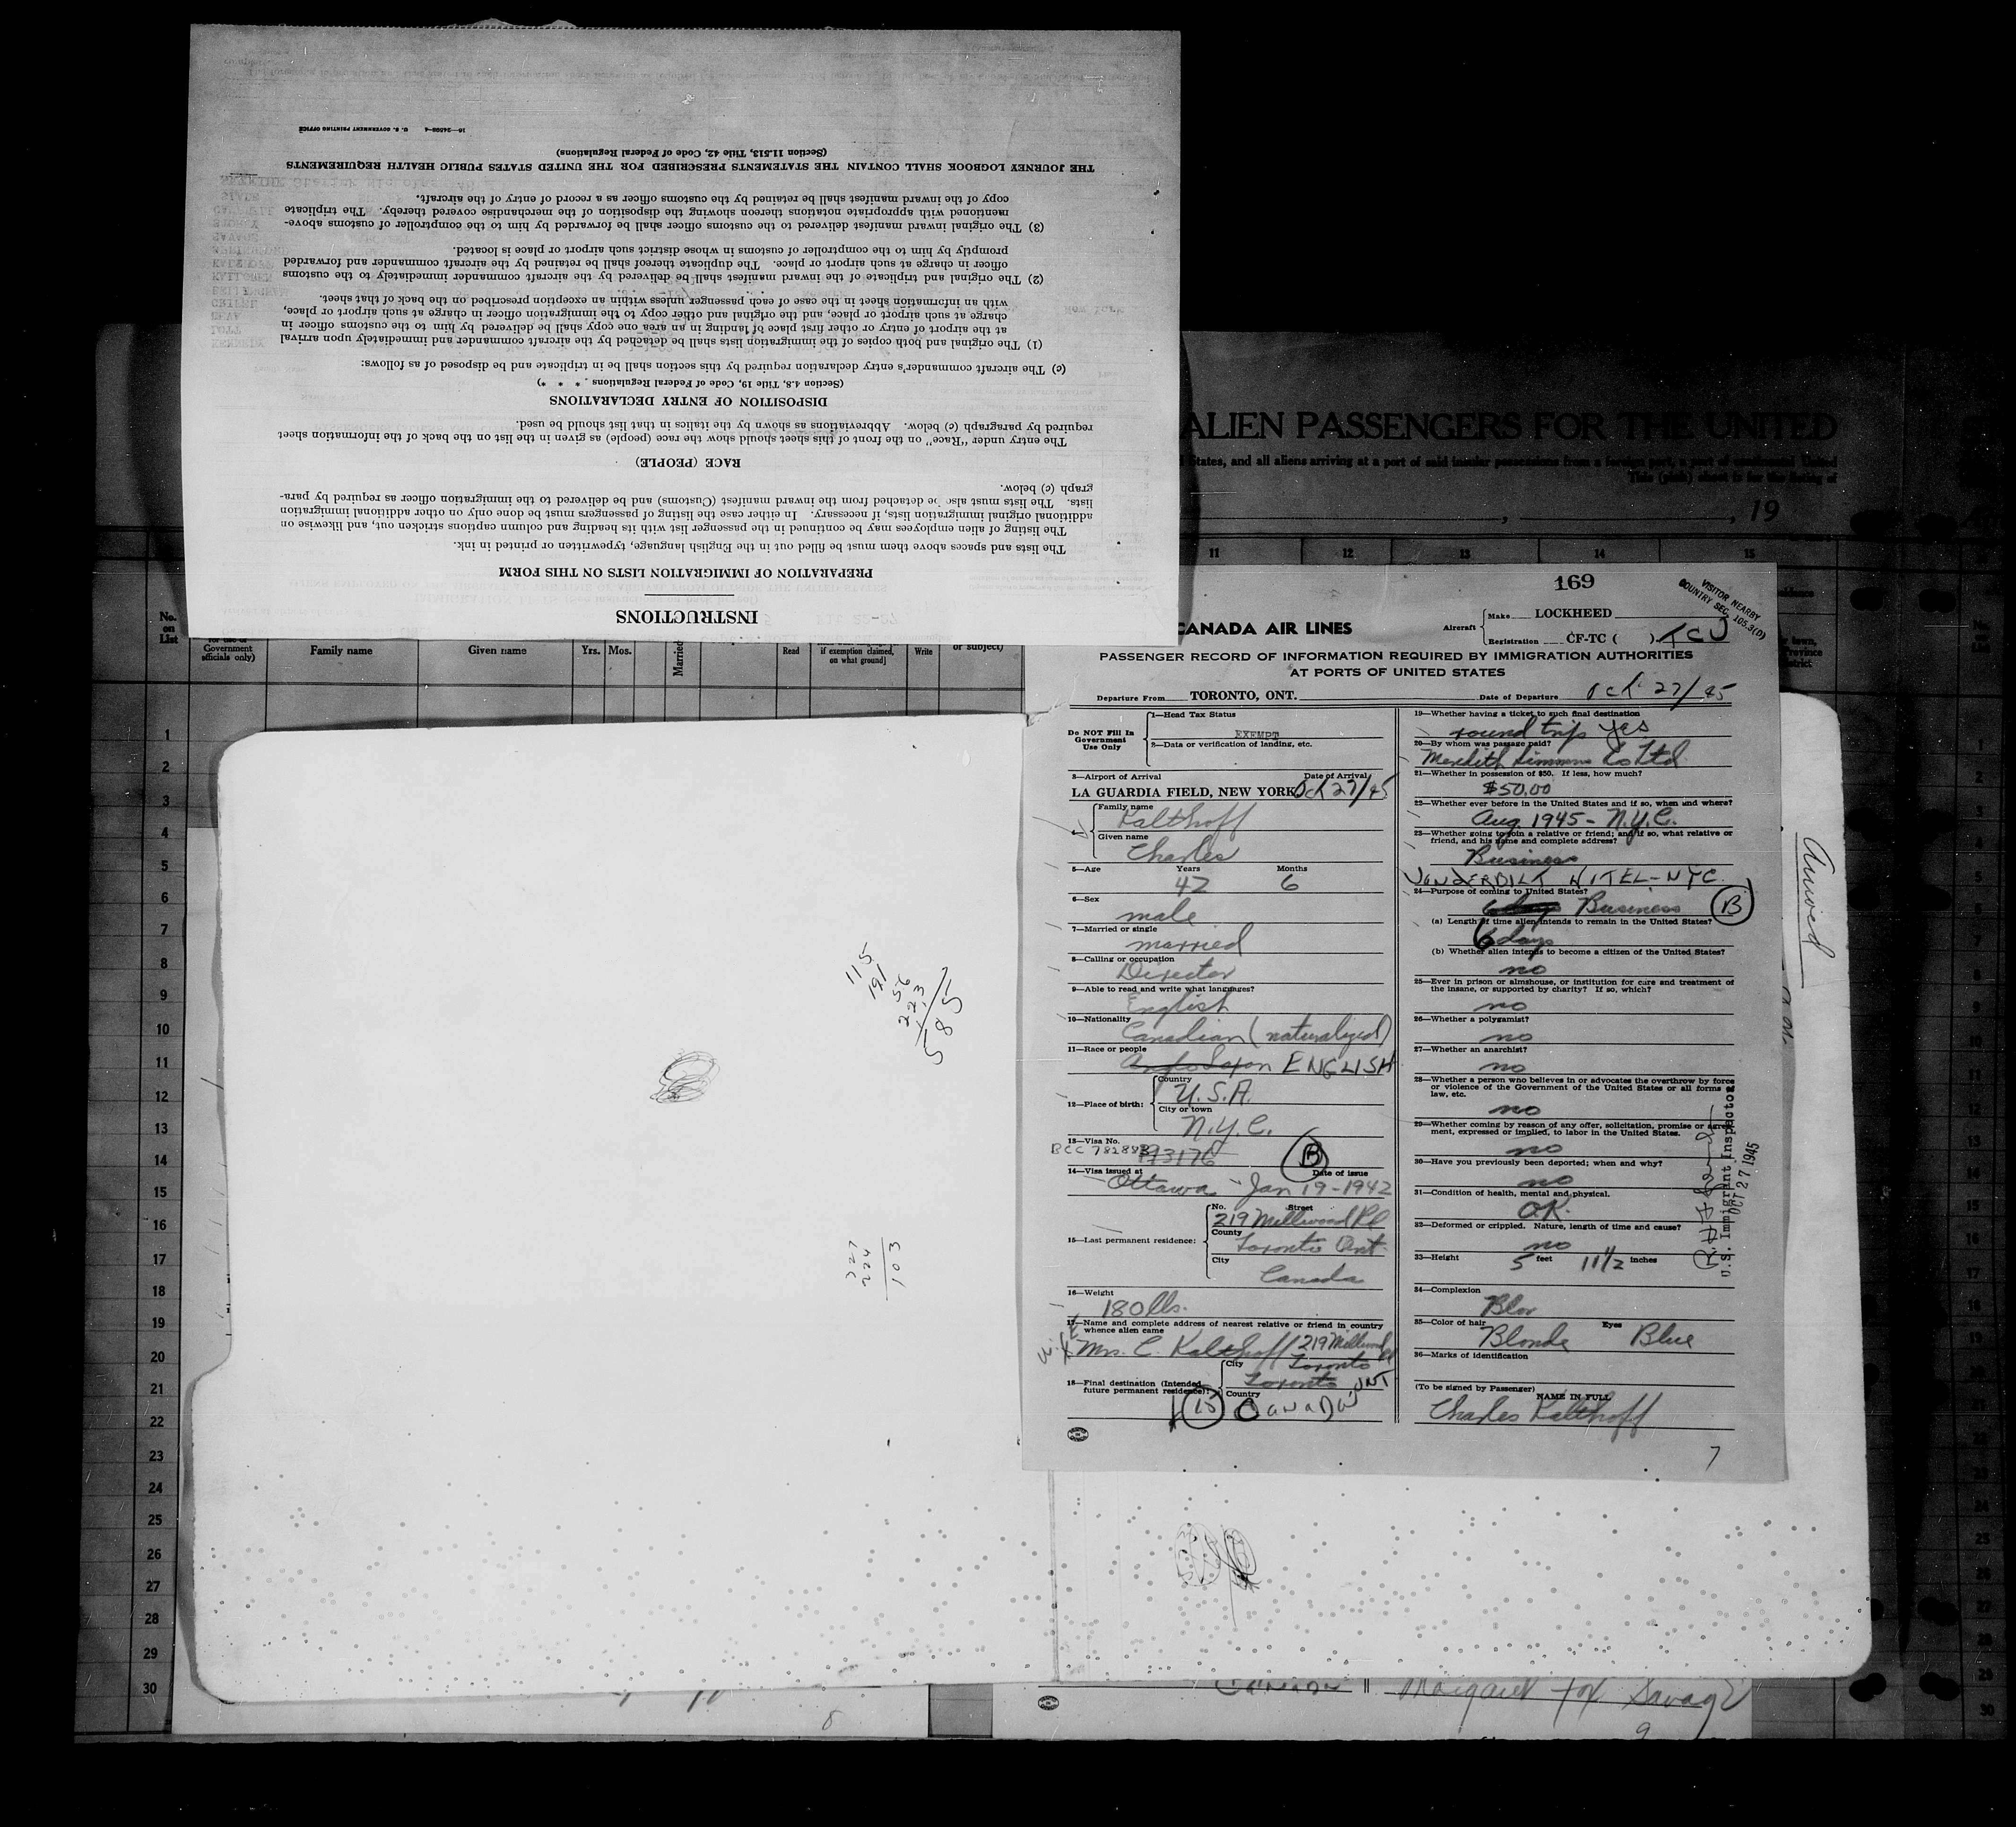 INSTRUCTIONS
PREPARATION OF IMMIGRATION LISTS ON THIS FORM
The lists and spaces above them must be filled out in the English language, typewritten or printed in ink.
The listing of alien employees may be continued in the passenger list with its heading and column captions stricken out, and likewise on
additional original immigration lists, if necessary. In either case the listing of passengers must be done only on other additional immigration
lists. The lists must also be detached from the inward manifest (Customs) and be delivered to the immigration officer as required by para-
graph (c) below.
RACE (PEOPLE)
The entry under "Race" on the front of this sheet should show the race (people) as given in the list on the back of the information sheet
required by paragraph (c) below. Abbreviations as shown by the italics in that list should be used.
DISPOSITION OF ENTRY DECLARATIONS
(Section 4.8, Title 19, Code of Federal Regulations. * * *)
(c) The aircraft commander's entry declaration required by this section shall be in triplicate and be disposed of as follows:
(1) The original and both copies of the immigration lists shall be detached by the aircraft commander and immediately upon arrival
at the airport of entry or other first place of landing in an area one copy shall be delivered by him to the customs officer in
charge at such airport or place, and the original and other copy to the immigration officer in charge at such airport or place,
with an information sheet in the case of each passenger unless within an exception prescribed on the back of that sheet.
(2) The original and triplicate of the inward manifest shall be delivered by the aircraft commander immediately to the customs
officer in charge at such airport or place. The duplicate thereof shall be retained by the aircraft commander and forwarded
promptly by him to the comptroller of customs in whose district such airport or place is located.
(3) The original inward manifest delivered to the customs officer shall be forwarded by him to the comptroller of customs above-
mentioned with appropriate notations thereon showing the disposition of the merchandise covered thereby. The triplicate
copy of the inward manifest shall be retained by the customs officer as a record of entry of the aircraft.
THE JOURNEY LOGBOOK SHALL CONTAIN THE STATEMENTS PRESCRIBED FOR THE UNITED STATES PUBLIC HEALTH REQUIREMENTS
(Section 11.513, Title 42, Code of Federal Regulations)
16—24598-4 U. S. GOVERNMENT PRINTING OFFICE
ALIEN PASSENGERS FOR THE UNITED
States, and all aliens arriving at a port of said insular possessions from a foreign port, a port of continental United
, 19
11 12 13 14 15
No. on List
Government officials only)
Family name
Given name
Yrs. Mos.
Married
Read
if exemption claimed, on what ground]
Write
or subject)
1
2
3
4
5
6
7
8
9
10
11
12
13
14
15
16
17
18
19
20
21
22
23
24
25
26
27
28
29
30
115
191
56
223
585
327
224
103
Arrived
169
VISITOR NEARBY
COUNTRY SEC. 105.3(D)
CANADA AIR LINES
Aircraft
Make LOCKHEED
Registration CF-TC ( ) TCJ
PASSENGER RECORD OF INFORMATION REQUIRED BY IMMIGRATION AUTHORITIES
AT PORTS OF UNITED STATES
Departure From TORONTO, ONT.
Date of Departure Oct 27/45
Do NOT Fill In Government Use Only
1—Head Tax Status
EXEMPT
2—Data or verification of landing, etc.
3—Airport of Arrival Date of Arrival
LA GUARDIA FIELD, NEW YORK Oct 27/45
4
Family name
Kalthoff
Given name
Charles
5—Age Years Months
42 6
6—Sex
male
7—Married or single
married
8—Calling or occupation
Director
9—Able to read and write what languages?
English
10—Nationality
Canadian (naturalized)
11—Race or people
Anglo Saxon ENGLISH
12—Place of birth:
Country
U.S.A.
City or town
N.Y.C.
13—Visa No.
193176
B
14—Visa issued at Date of issue
Ottawa - Jan 19-1942
15—Last permanent residence:
No. Street
219 Millwood Rd
County
Toronto Ont.
City
Canada
16—Weight
180 lbs.
17—Name and complete address of nearest relative or friend in country
whence alien came
wife
Mrs. C. Kalthoff 219 Millwood Rd
Toronto
18—Final destination (Intended
future permanent residence):
City
Toronto ONT
Country
15 CANADA
19—Whether having a ticket to such final destination
round trip yes
20—By whom was passage paid?
Meredith Simmons Co Ltd.
21—Whether in possession of $50. If less, how much?
$50.00
22—Whether ever before in the United States and if so, when and where?
Aug. 1945 - N.Y.C.
23—Whether going to join a relative or friend; and if so, what relative or
friend, and his name and complete address?
Business
VANDERBILT HOTEL-NYC.
24—Purpose of coming to United States?
6 days Business B
(a) Length of time alien intends to remain in the United States?
6 days
(b) Whether alien intends to become a citizen of the United States?
no
25—Ever in prison or almshouse, or institution for care and treatment of
the insane, or supported by charity? If so, which?
no
26—Whether a polygamist?
no
27—Whether an anarchist?
no
28—Whether a person who believes in or advocates the overthrow by force
or violence of the Government of the United States or all forms of
law, etc.
no
29—Whether coming by reason of any offer, solicitation, promise or agree-
ment, expressed or implied, to labor in the United States.
no
30—Have you previously been deported; when and why?
no
31—Condition of health, mental and physical.
O.K.
32—Deformed or crippled. Nature, length of time and cause?
no
33—Height 5 feet 11½ inches
34—Complexion
35—Color of hair Eyes
Blonde Blue
36—Marks of identification
(To be signed by Passenger) NAME IN FULL
Charles Kalthoff
U.S. Immigrant Inspector
OCT 27 1945
7
Canada
Margaret Fox Savage
8
9